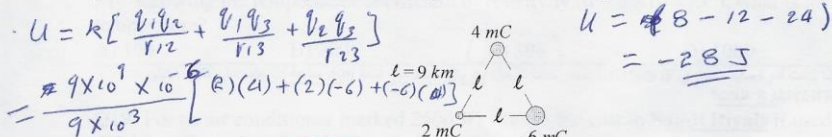 · U = k[ q₁q₂/r₁₂ + q₁q₃/r₁₃ + q₂q₃/r₂₃ ]
= 9×10⁹ × 10⁻⁶ / 9×10³ [ (2)(4) + (2)(-6) + (-6)(4) ]
4 mC
ℓ = 9 km
ℓ ℓ
2 mC ℓ
U = (8 - 12 - 24)
= -28 J